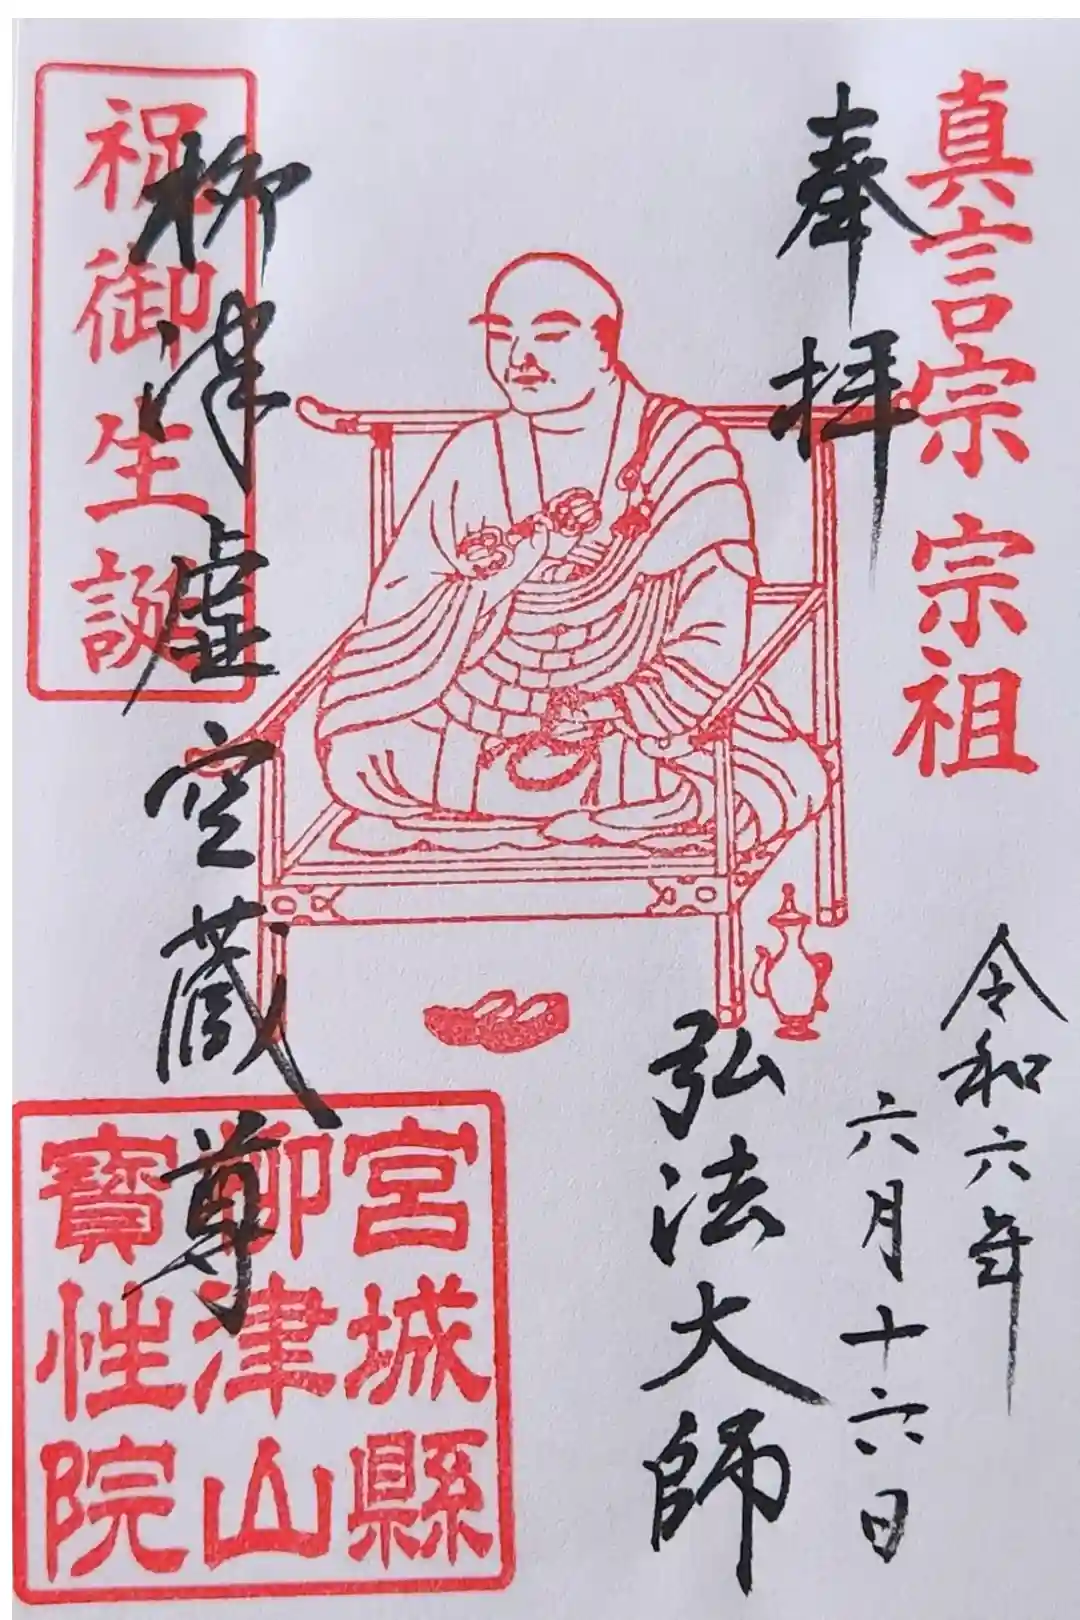 真言宗宗祖
奉拝
令和六年
六月十六日
弘法大師
祝御生誕
柳津虚空蔵尊
宮城縣
柳津山
寶性院